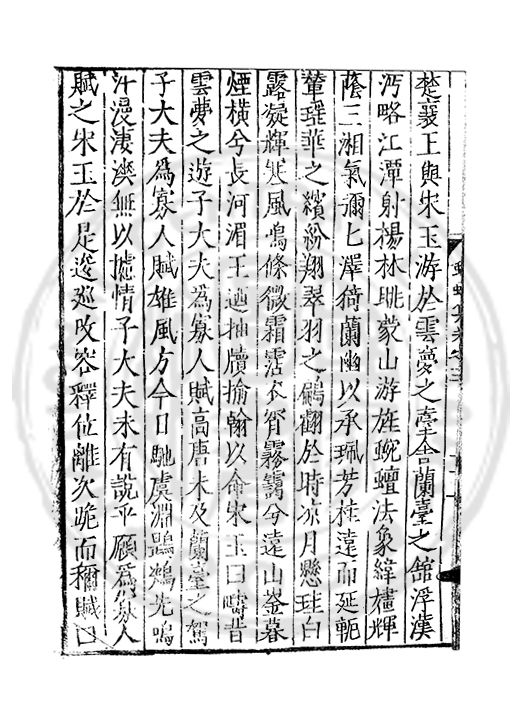 楚襄王與宋玉游於雲夢之臺舍蘭臺之舘浮漢
沔略江潭射楊林眺蒙山游旌蜺蟺法象緯櫨輝
蔭三湘氣彌七澤倚蘭幽以承珮芳桂遠而延軛
䔖瑶華之繽紛翔翠羽之 翻於時凉月懸珪白
露凝輝凄風鳴條微霜霑衣宵霧靄兮遠山崟暮
煙橫兮長河湄王迺抽牘揄翰以命宋玉曰疇昔
雲夢之遊子大夫為寡人賦高唐未及蘭臺之駕
子大夫為寡人賦雄風方今日馳虞淵鶗鴂先鳴
汗漫淒深無以攄情子大夫未有說乎願為寡人
賦之宋玉於是逡巡改容釋位離次跪而稱賦曰